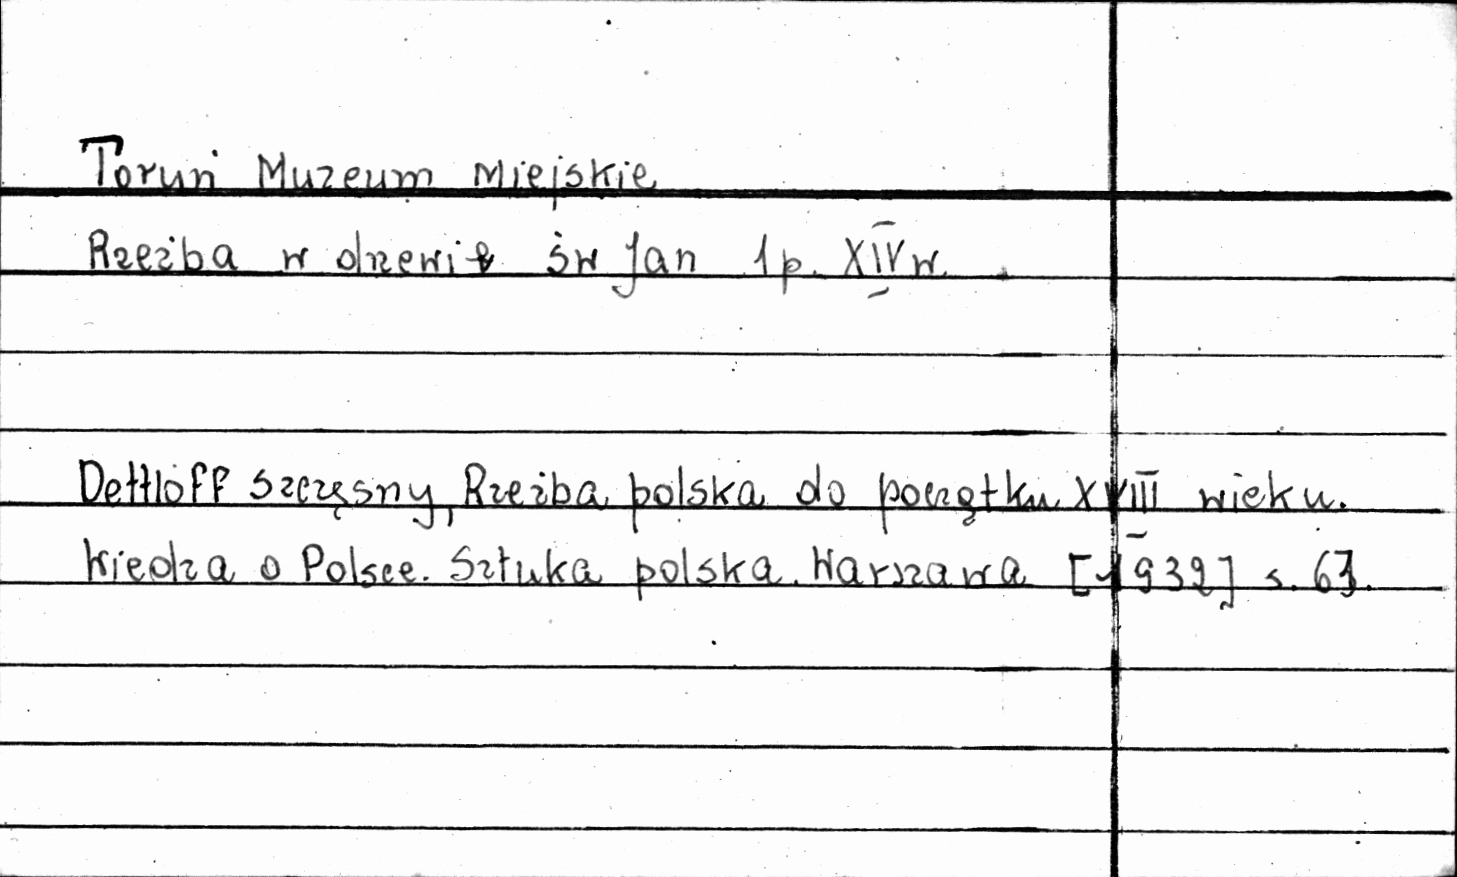 Toruń Muzeum Miejskie
Rzeźba w drzewie św Jan 1 p. XIV w.
Dettloff Szczęsny, Rzeźba polska do początku XVIII wieku.
Wiedza o Polsce. Sztuka polska. Warszawa [1939] s. 61.